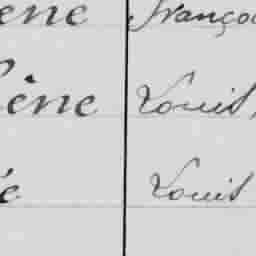 ène Franço
ène Louis,
é Louis